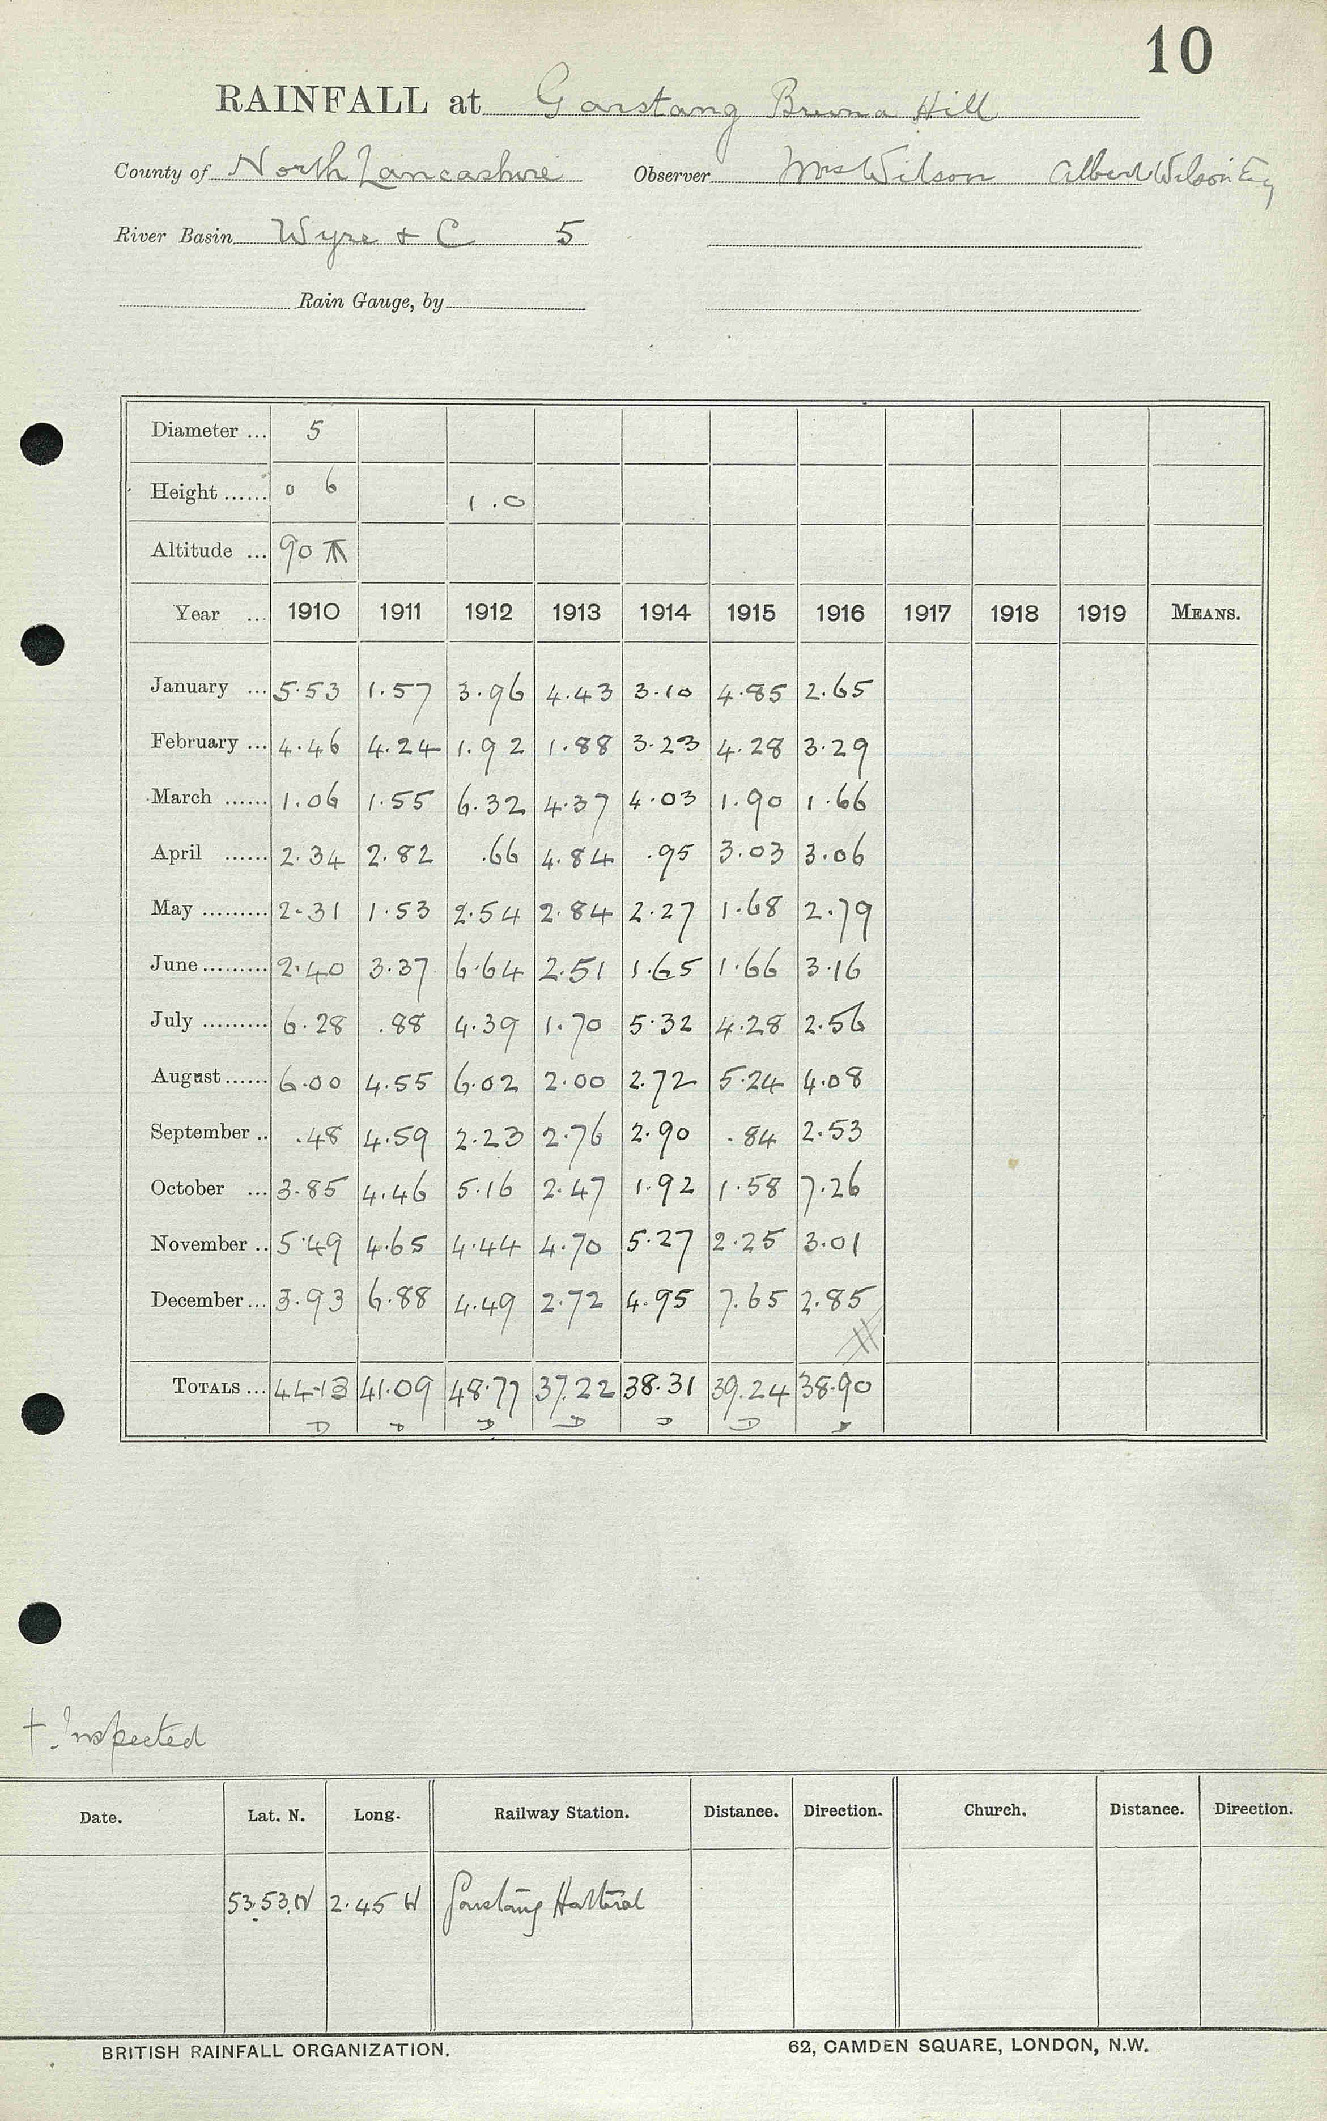 10
RAINFALL at Garstang Bruna Hill
County of North Lancashire Observer Mrs Wilson Albert Wilson Esq
River Basin Wyre & C 5
Rain Gauge, by
Diameter ... 5
Height ...... 0 6 1.0
Altitude ... 90
Year ... 1910 1911 1912 1913 1914 1915 1916 1917 1918 1919 MEANS.
January ... 5.53 1.57 3.96 4.43 3.10 4.85 2.65
February ... 4.46 4.24 1.92 1.88 3.23 4.28 3.29
March ...... 1.06 1.55 6.32 4.37 4.03 1.90 1.66
April ...... 2.34 2.82 .66 4.84 .95 3.03 3.06
May ......... 2.31 1.53 2.54 2.84 2.27 1.68 2.79
June ......... 2.40 3.37 6.64 2.51 1.65 1.66 3.16
July ......... 6.28 .88 4.39 1.70 5.32 4.28 2.56
August ...... 6.00 4.55 6.02 2.00 2.72 5.24 4.08
September .. .48 4.59 2.23 2.76 2.90 .84 2.53
October ... 3.85 4.46 5.16 2.47 1.92 1.58 7.26
November .. 5.49 4.65 4.44 4.70 5.27 2.25 3.01
December ... 3.93 6.88 4.49 2.72 4.95 7.65 2.85
TOTALS ... 44.13 41.09 48.77 37.22 38.31 39.24 38.90
D D D D D D D
+. Inspected
Date. Lat. N. Long. Railway Station. Distance. Direction. Church. Distance. Direction.
53.53.N 2.45 W Garstang
BRITISH RAINFALL ORGANIZATION. 62, CAMDEN SQUARE, LONDON, N.W.